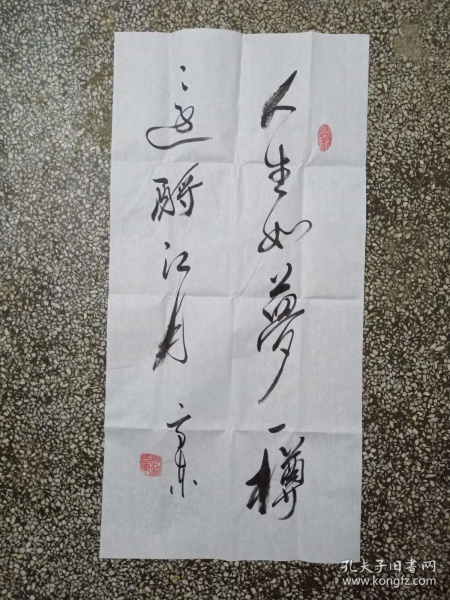 人生如夢一樽
還酹江月
孔夫子旧书网
www.kongfz.com